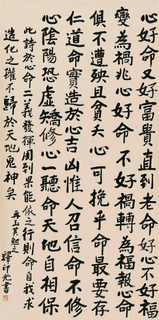 心好命又好富貴直到老命好心不好福
變為禍兆心好命不好禍轉為福報心命
俱不好遭殃且貧夭心可挽乎命最要存
仁道命實造於心吉凶惟人召信命不修
心陰陽恐虛矯修心一聽命天地自相保
此詩於心命二義發揮周到果能依之行則命自我求
造化之權不歸於天地鬼神矣
釋印光書